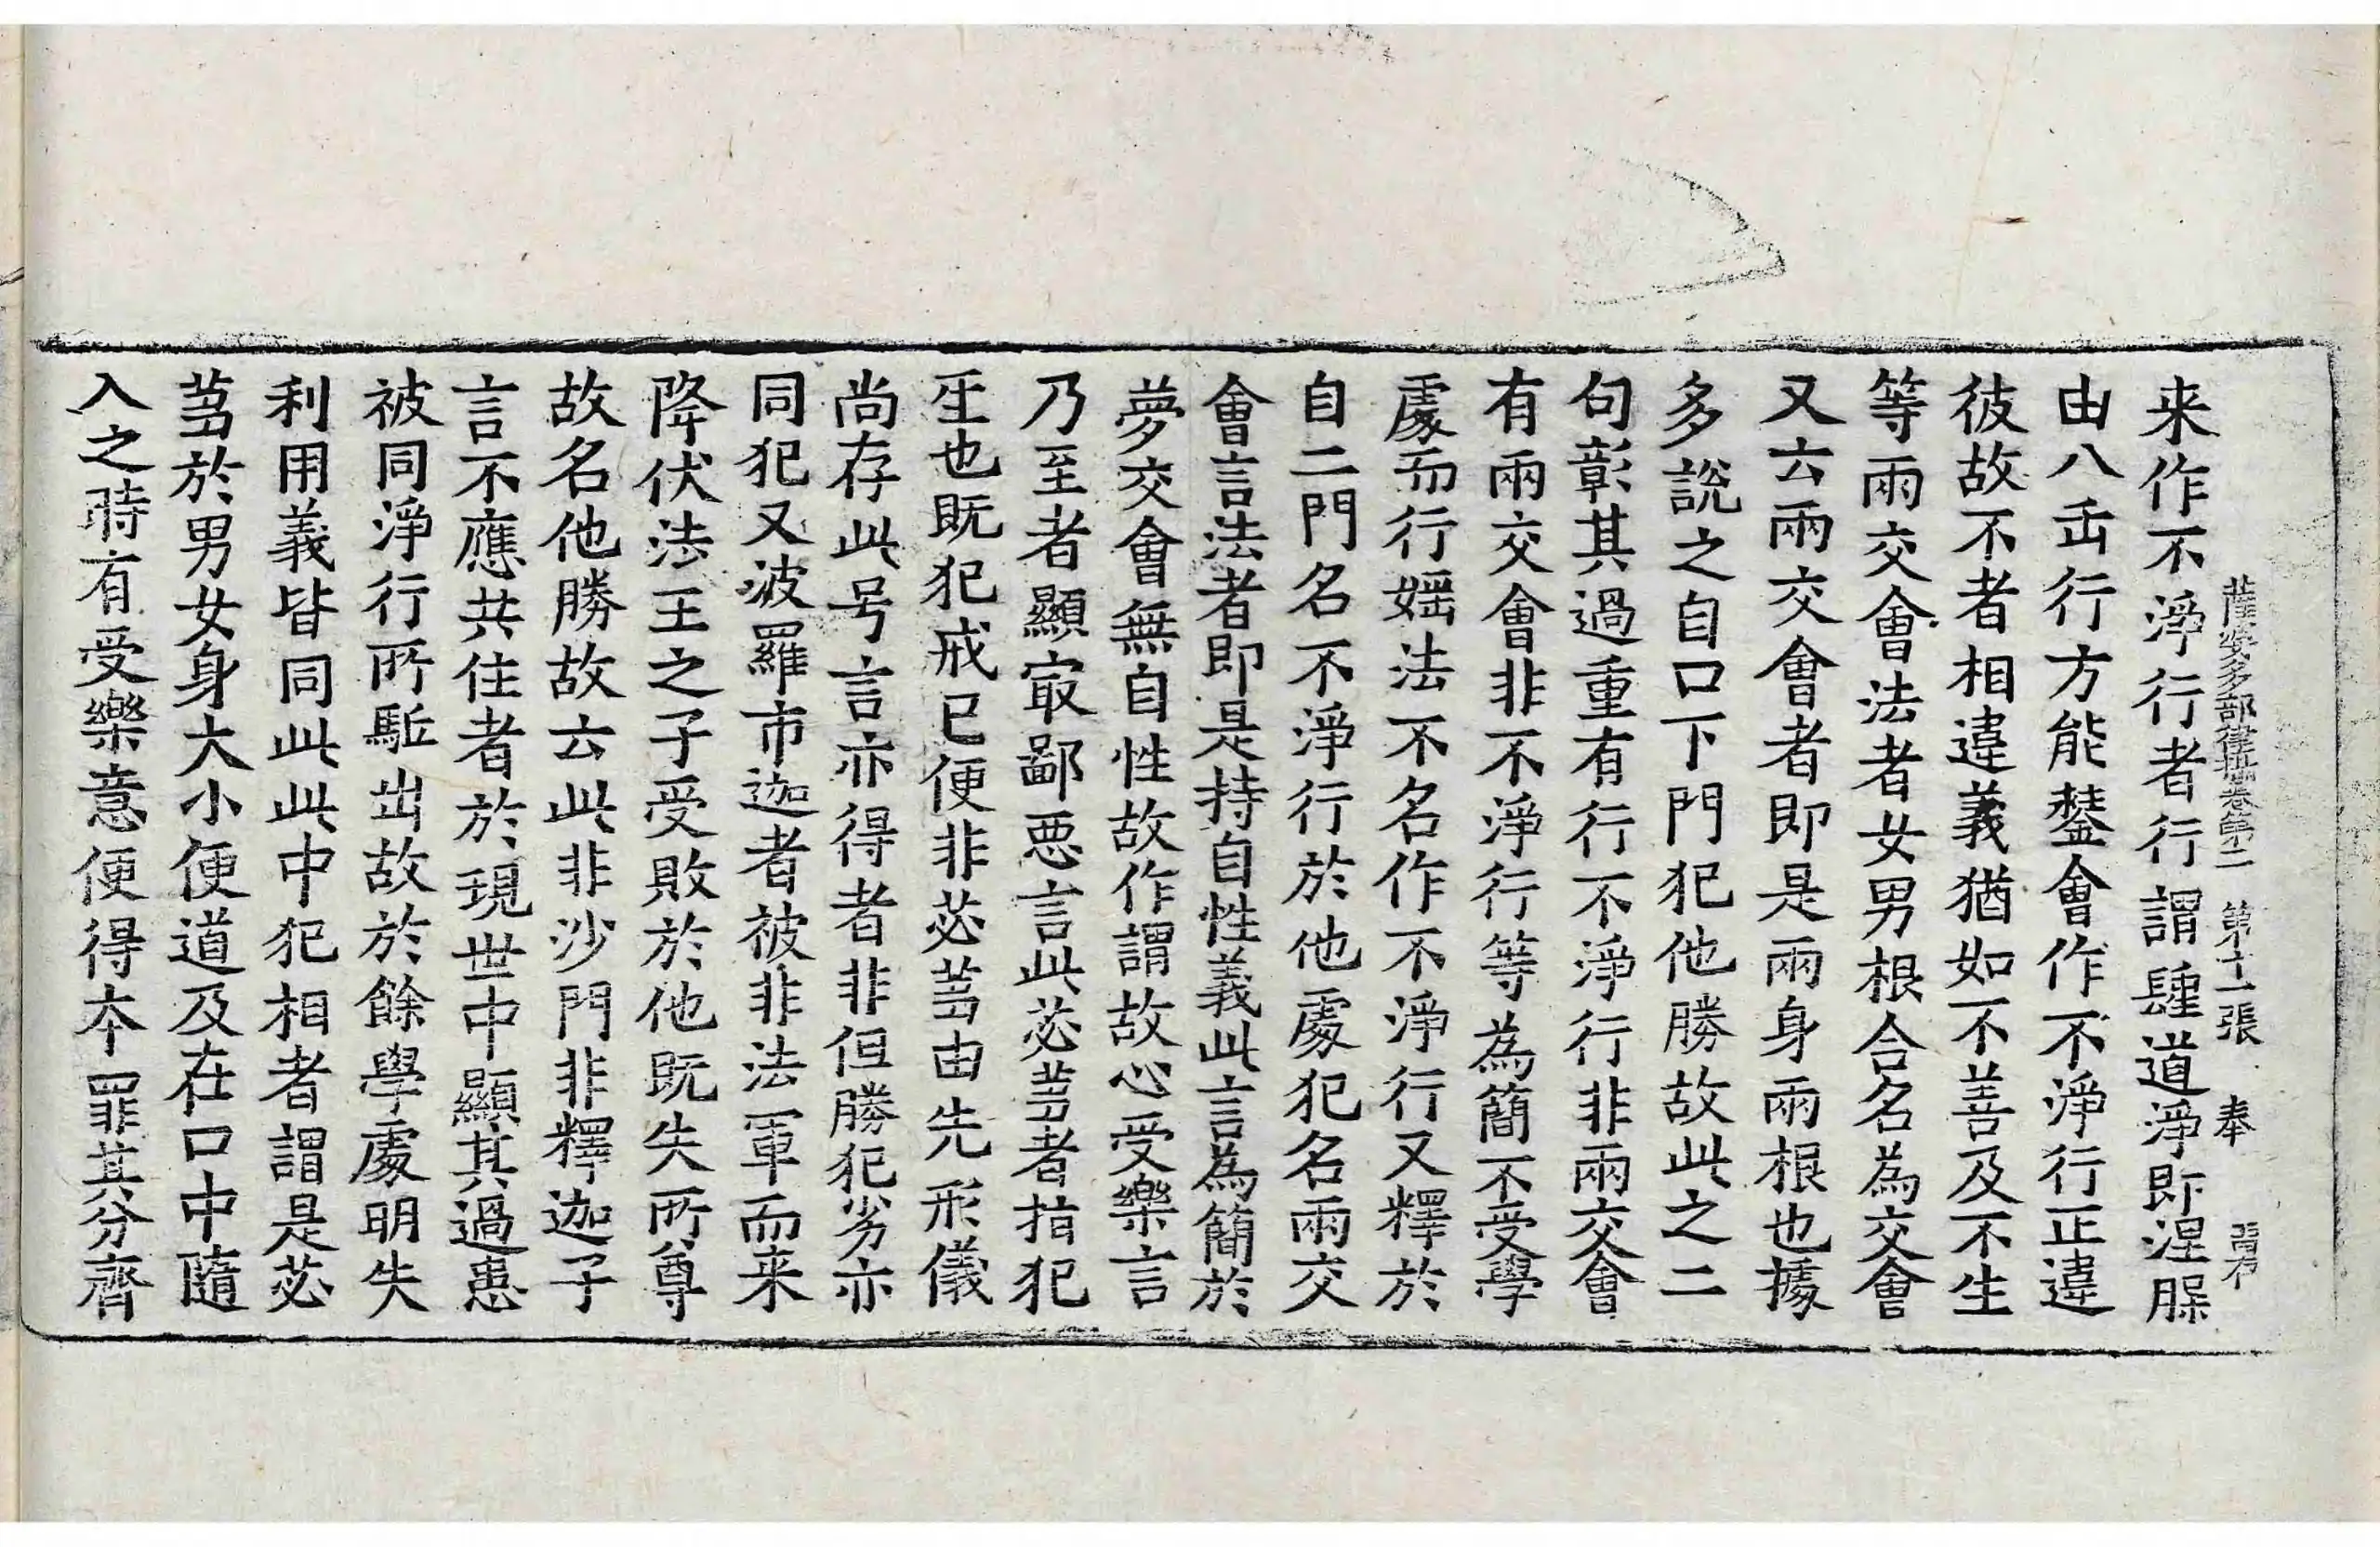 薩婆多部律攝卷第二 第十一張 奉
来作不淨行者行謂聖道淨即涅槃
由八缶行方能盭會作不淨行正違
彼故不者相違義猶如不善及不生
等兩交會法者女男根合名為交會
又云兩交會者即是兩身兩根也據
多說之自口下門犯他勝故此之二
句彰其過重有行不淨行非兩交會
有兩交會非不淨行等為簡不受學
處而行婬法不名作不淨行又釋於
自二門名不淨行於他處犯名兩交
會言法者即是持自性義此言為簡於
夢交會無自性故作謂故心受樂言
乃至者顯㝡鄙惡言此苾芻者指犯
𤯔也既犯戒已便非苾芻由先形儀
尚存此号言亦得者非但勝犯劣亦
同犯又波羅市迦者被非法軍而来
降伏法王之子受敗於他既失所尊
故名他勝故云此非沙門非釋迦子
言不應共住者於現世中顯其過患
被同淨行所駈出故於餘學處明失
利用義皆同此此中犯相者謂是苾
芻於男女身大小便道及在口中隨
入之時有受樂意便得本罪其分齊